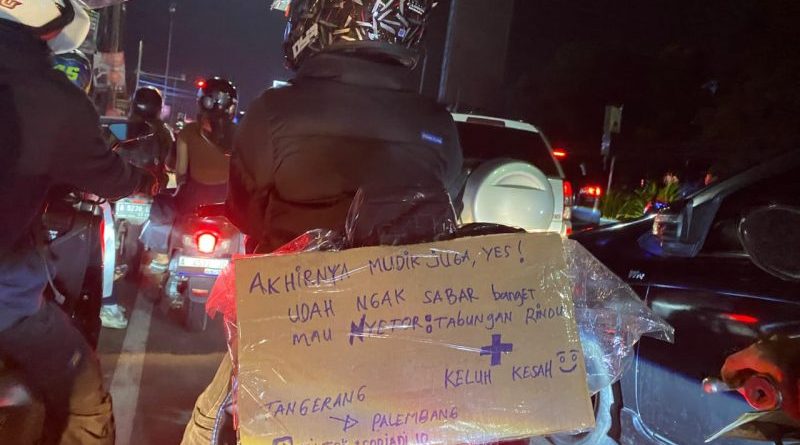 AKHIRNYA MUDIK JUGA, YES!
UDAH NGAK SABAR banget
MAU NYETOR : TABUNGAN RINDU
+
KELUH KESAH
TANGERANG
PALEMBANG